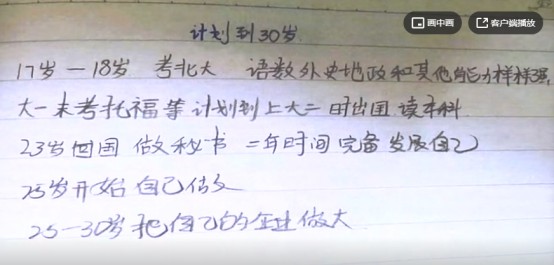 画中画 客户端播放
计划到30岁
17岁—18岁 考北大 语数外史地政和其他能力样样强
大一末考托福等 计划到上大二时出国读本科
23岁回国 做秘书 二年时间完备发展自己
25岁开始自己做
25—30岁把自己的企业做大